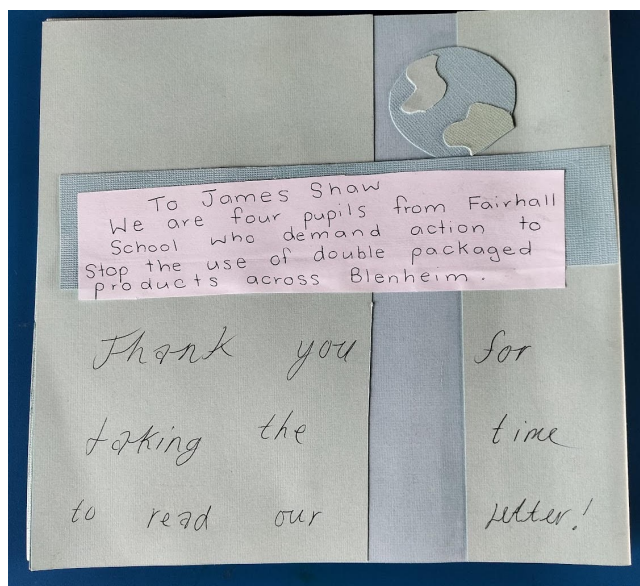 To James Shaw
We are four pupils from Fairhall
School who demand action to
Stop the use of double packaged
products across Blenheim.
Thank you for
taking the time
to read our letter!